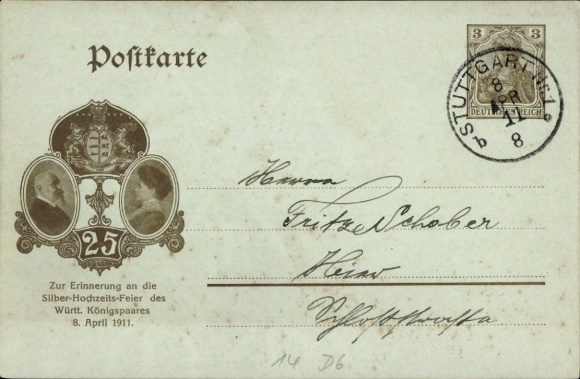 Postkarte
3
DEUTSCHES REICH
STUTTGART No. 1
8
APR
11
8
b
25
Zur Erinnerung an die
Silber-Hochzeits-Feier des
Württ. Königspaares
8. April 1911.
Herrn
Fritz Schober
Hier
Schloßstraße
14 D6.